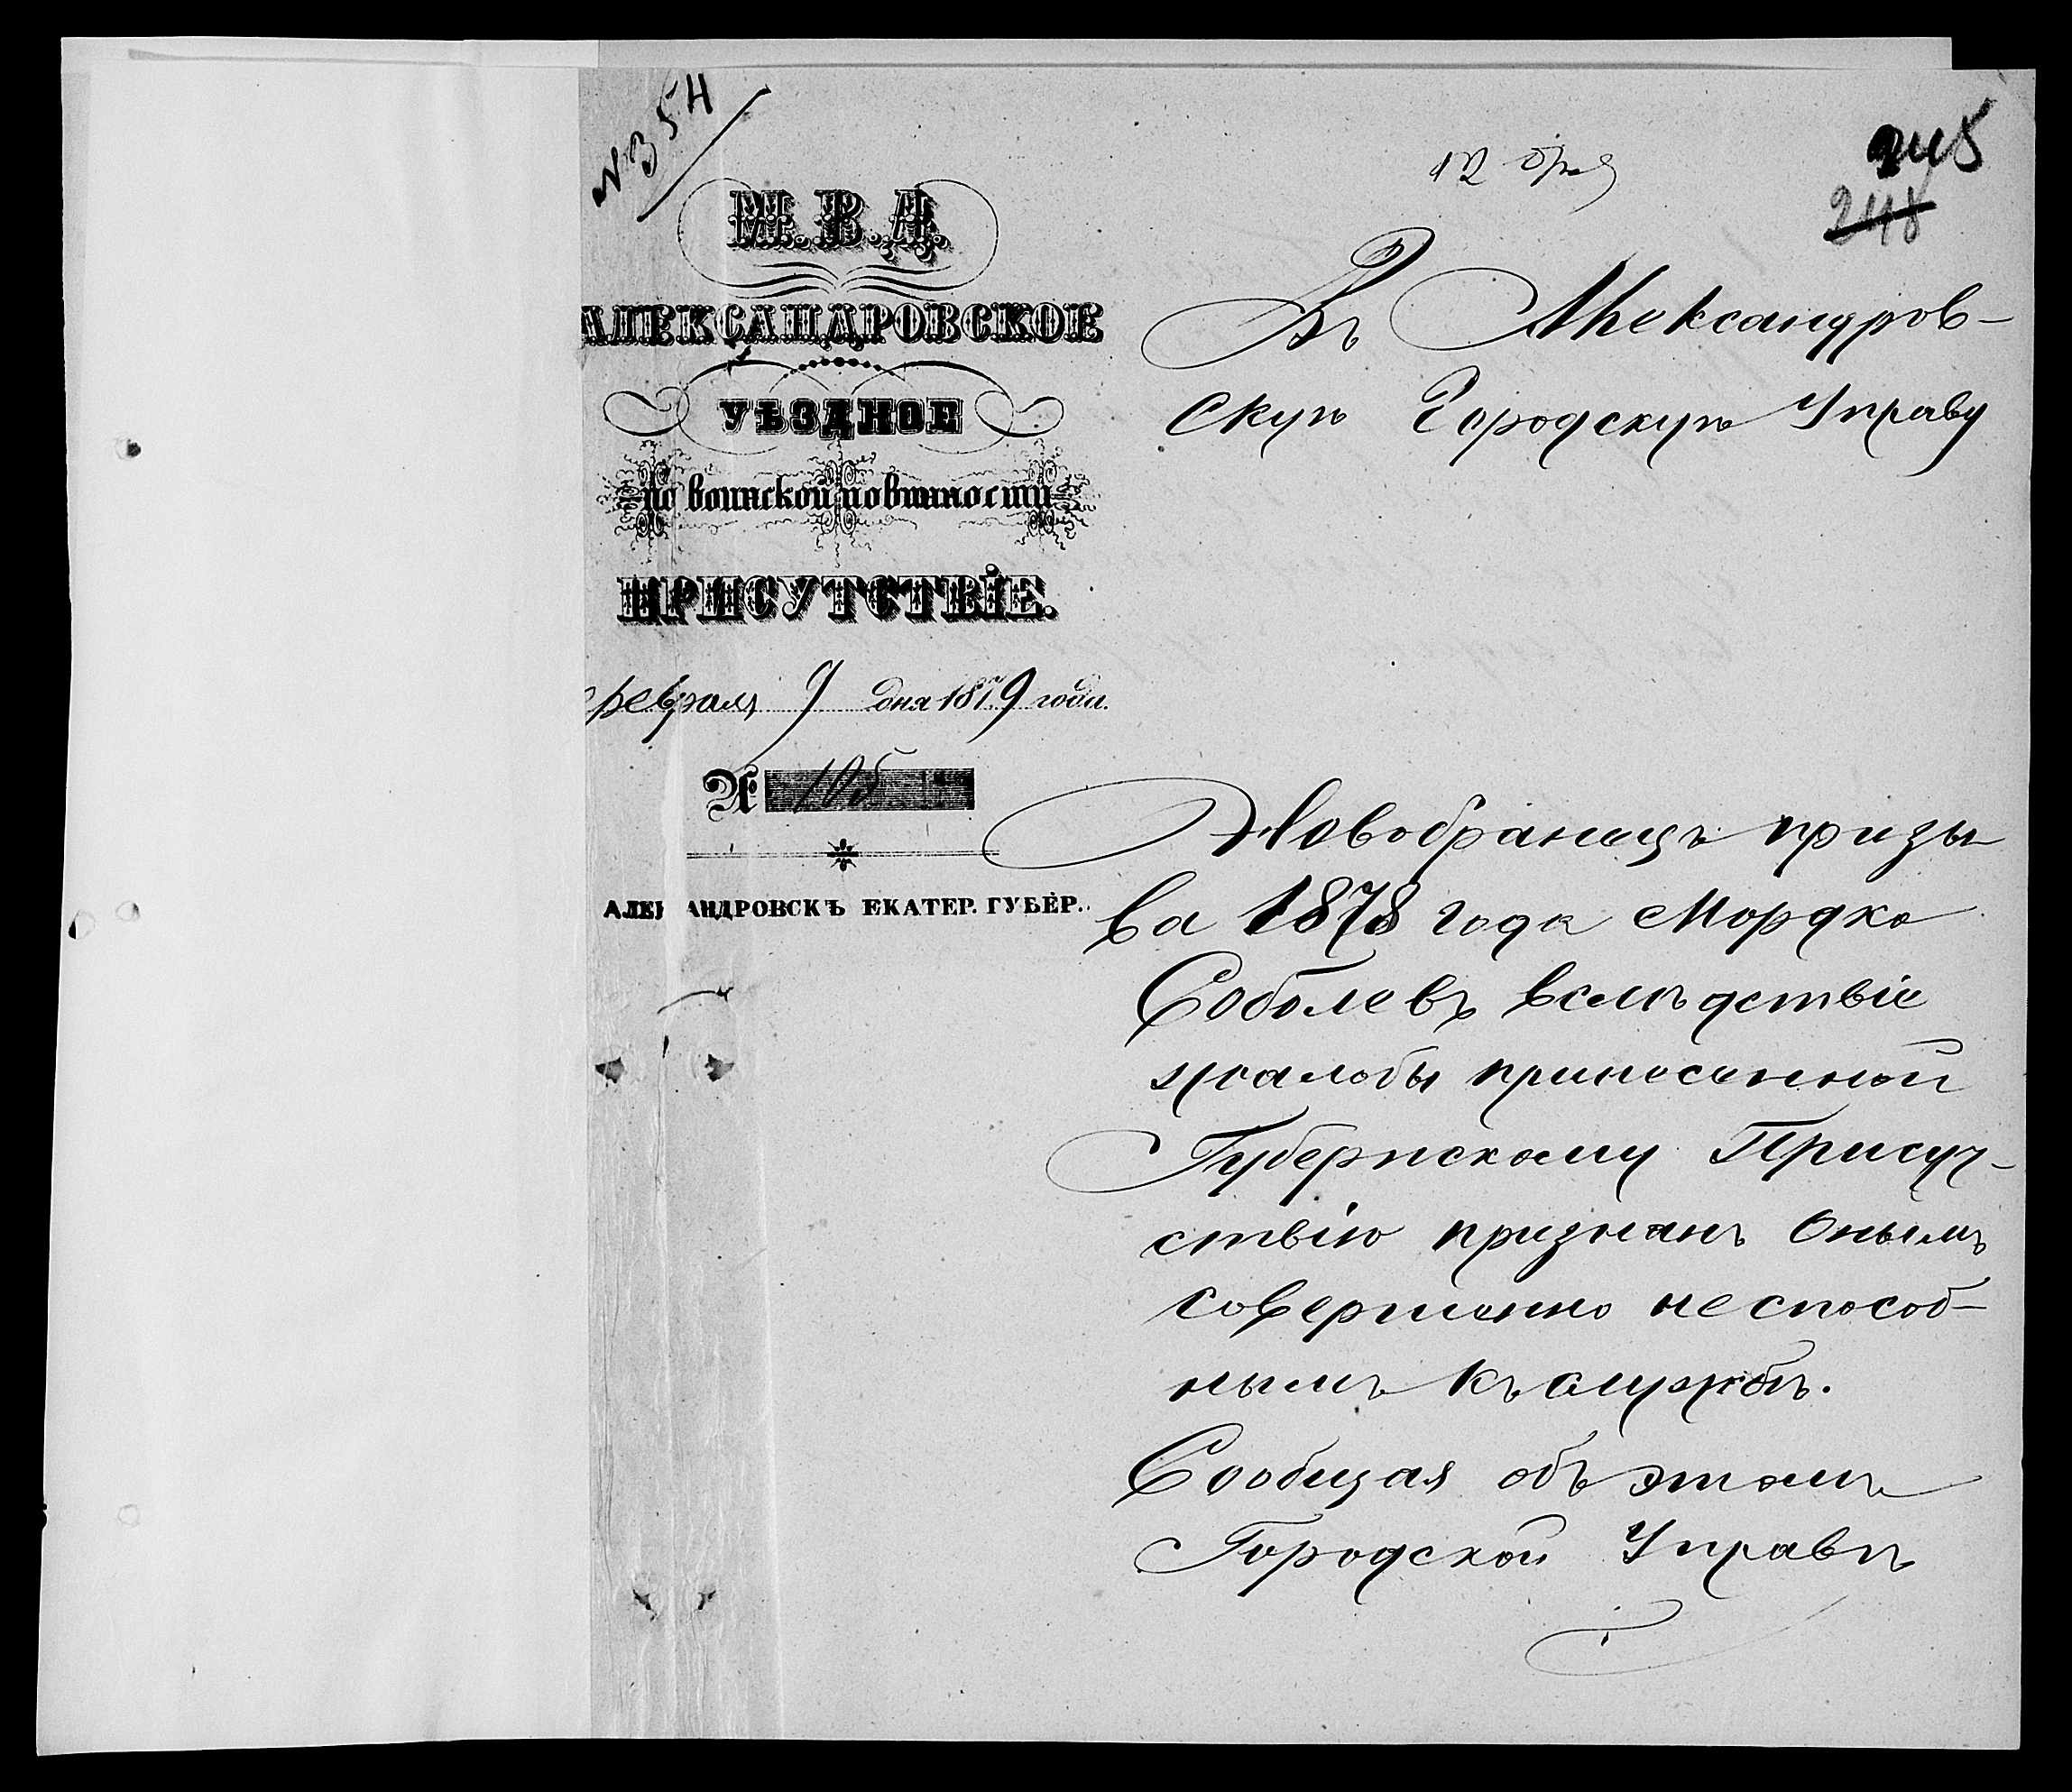 № 354
12 фев
245
248
М. В. Д.
АЛЕКСАНДРОВСКОЕ
УѢЗДНОЕ
по воинской повинности
ПРИСУТСТВІЕ.
февраля 9 дня 1879 года.
№ 105
АЛЕКАНДРОВСКЪ ЕКАТЕР. ГУБЕР.
Въ Александров-
скую Городскую Управу
Новобранецъ призы
ва 1878 года Мордко
Соболевъ вслѣдствіе
жалобы принесенной
Губернскому Присут-
ствію признанъ Онымъ
совершенно неспособ-
нымъ къ службѣ.
Сообщая объ этомъ
Городской Управѣ